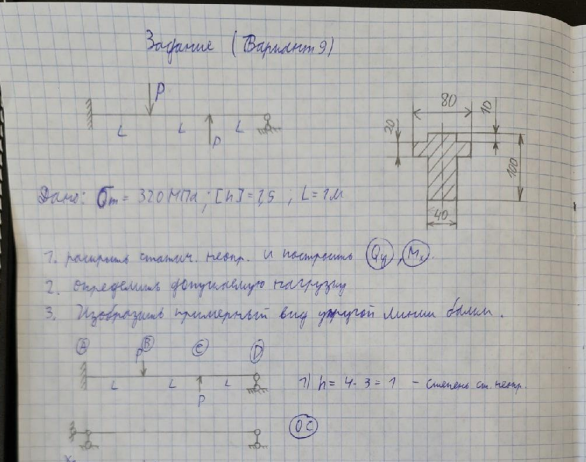 Задание (Вариант 9)
P
L L L
P
80
10
20
100
40
Дано: σт = 320 МПа ; [h] = 1,5 , L = 1м
1. раскрыть статич. неопр. и построить Qy , Mx
2. определить допускаемую нагрузку
3. Изобразить примерный вид упругой линии балки.
A B C D
P
L L L
P
1) h = 4 - 3 = 1 - степень ст. неопр.
ОС
X1